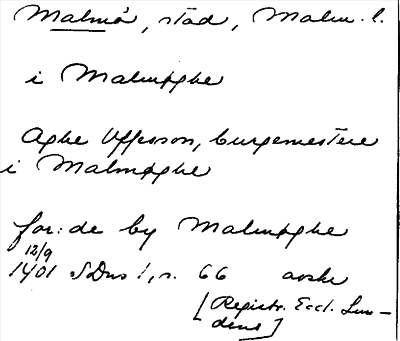 Malmö, stad, Malm. l.
i Malmøghe
Aghe Uffesson, burgemestere
i Malmøghe
for: de by Malmøghe
12/9
1401 SDns 1, s. 66 avskr
[Registr. Eccl. Lun-
dens]